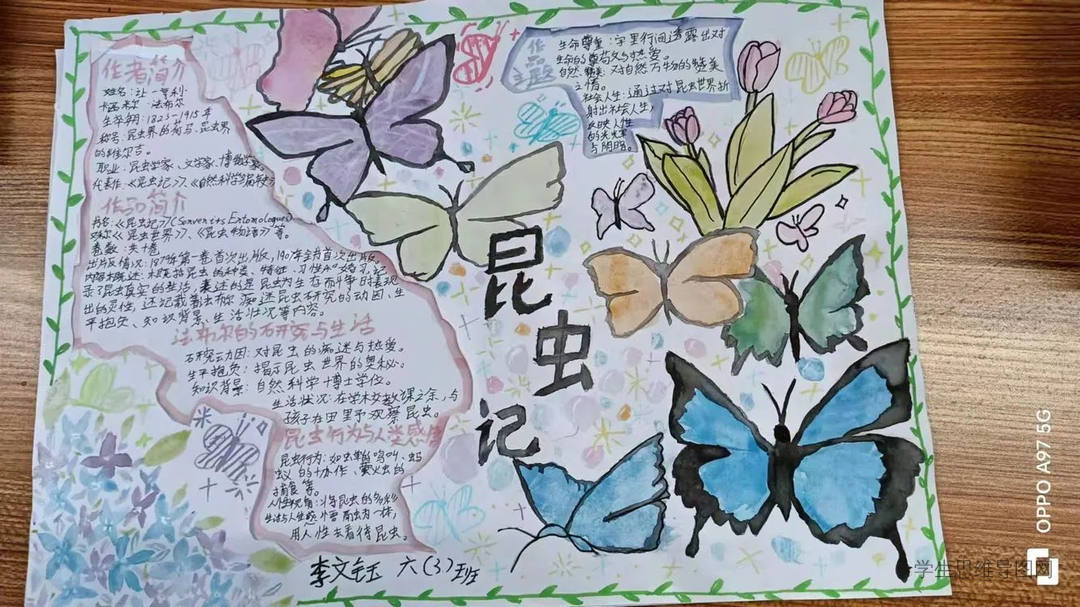 作者简介
姓名：让-亨利·
卡西米尔·法布尔
生卒年月：1823-1915年
称号：昆虫界的荷马、昆虫界
的维尔吉。
职业：昆虫学家、文学家、博物学家。
代表作：《昆虫记》、《自然科学编年史》
作品简介
丹名：《昆虫记》(Souvenirs Entomologiques)
又称《昆虫世界》、《昆虫物语》等。
卷数：共十卷
出版情况：1879年第一卷首次出版，1907年全书首次出版。
内容概述：概括昆虫的种类、特征、习性和婚习，记
录了昆虫真实的生活，表述的是昆虫为生存而斗争时表现
出的灵性，还记载着法布尔痴迷昆虫研究的动因、生
平抱负、知识背景、生活状况等内容。
法布尔的研究与生活
研究动因：对昆虫的痴迷与热爱。
生平抱负：揭示昆虫世界的奥秘。
知识背景：自然科学博士学位。
生活状况：在学术交教课之余，与
孩子在田里予观察昆虫。
昆虫行为与人类感情
昆虫行为：如虫蝉鸣叫、蚂
蚁的协作、萤火虫的
捕食等。
人性视角：将昆虫的多彩
生活与人生感悟融为一体，
用人性去看待昆虫。
李文钰 六(3)班
作品
主题
生命尊重：字里行间透露出对
生命的尊敬与热爱。
自然 对自然万物的赞美
之情。
社会人生：通过对昆虫世界折
射出社会人生，
反映人性
的光辉
与阴暗。
昆
虫
记
OPPO A97 5G
学生思维导图网